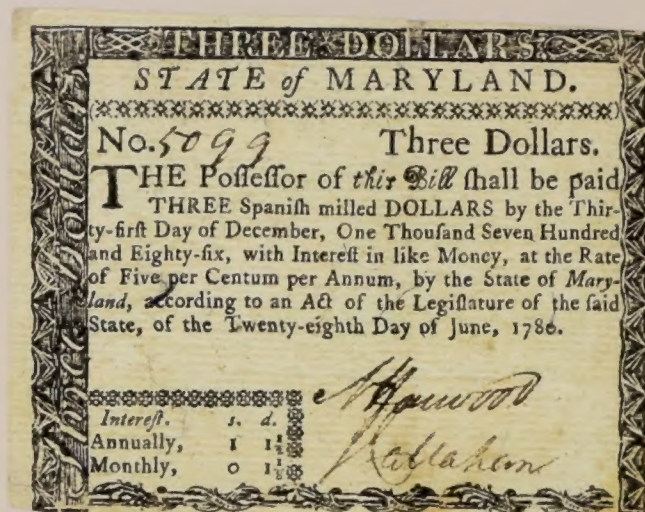 THREE DOLLARS.
Three Dollars.
STATE of MARYLAND.
No. 5099 Three Dollars.
THE Poſſeſſor of this Bill ſhall be paid
THREE Spaniſh milled DOLLARS by the Thir-
ty-firſt Day of December, One Thouſand Seven Hundred
and Eighty-ſix, with Intereſt in like Money, at the Rate
of Five per Centum per Annum, by the State of Mary-
land, according to an Act of the Legiſlature of the ſaid
State, of the Twenty-eighth Day of June, 1780.
Harwood
Intereſt. s. d.
Annually, 1 1½
Callahan
Monthly, 0 1⅛